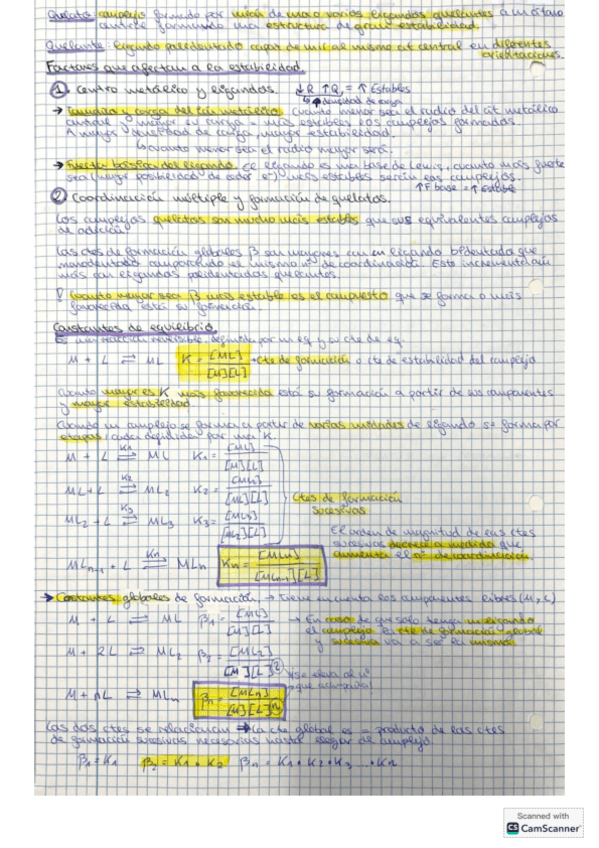 Quelato: complejo formado por unión de uno o varios ligandos quelantes a un átomo
central formando una estructura de gran estabilidad.
Quelante: ligando polidentado capaz de unir al mismo át central en diferentes
orientaciones.
Factores que afectan a la estabilidad.
① Centro metálico y ligandos. ↓R ↑Q = ↑Estables
↳ ↑densidad de carga
→ Tamaño y carga del ión metálico. Cuanto menor sea el radio del át metálico
central y mayor su carga = más estables los complejos formados.
A mayor densidad de carga, mayor estabilidad.
↳ cuanto menor sea el radio mayor será.
→ Fuerza básica del ligando. El ligando es una base de Lewis, cuanto más fuerte
sea (mayor posibilidad de ceder e⁻) más estables serán los complejos.
↑F base = ↑Estable
② Coordinación múltiple y formación de quelatos.
Los complejos quelatos son mucho más estables que sus equivalentes complejos
de adición.
Las ctes de formación globales β son mayores con un ligando bidentado que
monodentado comportando el mismo nº de coordinación. Esto incrementa aún
más con ligandos polidentados quelantes.
! Cuanto mayor sea β más estable es el compuesto que se forma o más
favorecida está su formación.
Constantes de equilibrio.
Es una reacción reversible definida por un eq y su cte de eq.
M + L ⇌ ML K = [ML] / [M][L] → Cte de formación o cte de estabilidad del complejo
Cuanto mayor es K más favorecida está su formación a partir de sus componentes
y mayor estabilidad.
Cuando un complejo se forma a partir de varias unidades de ligando se forma por
etapas, cada definida por una K.
M + L ⇌ ML K₁ = [ML] / [M][L]
K₁
ML + L ⇌ ML₂ K₂ = [ML₂] / [ML][L]
K₂
Ctes de formación
sucesivas
ML₂ + L ⇌ ML₃ K₃ = [ML₃] / [ML₂][L]
K₃
El orden de magnitud de estas ctes
sucesivas decrece a medida que
aumenta el nº de coordinación.
MLn-1 + L ⇌ MLn Kn = [MLn] / [MLn-1][L]
Kn
→ Constantes globales de formación, → Tiene en cuenta los componentes libres (M, L)
M + L ⇌ ML β₁ = [ML] / [M][L] → En caso de que solo tenga un ligando
el complejo la cte de formación global
y sucesiva va a ser la misma.
M + 2L ⇌ ML₂ β₂ = [ML₂] / [M][L]²
se eleva al nº
que acompaña!
M + nL ⇌ MLn βn = [MLn] / [M][L]ⁿ
Las dos ctes se relacionan → La cte global es = producto de las ctes
de formación sucesivas necesarias hasta llegar al complejo
β₁ = K₁ β₂ = K₁ · K₂ βn = K₁ · K₂ · K₃ .... Kn
Scanned with
CS CamScanner